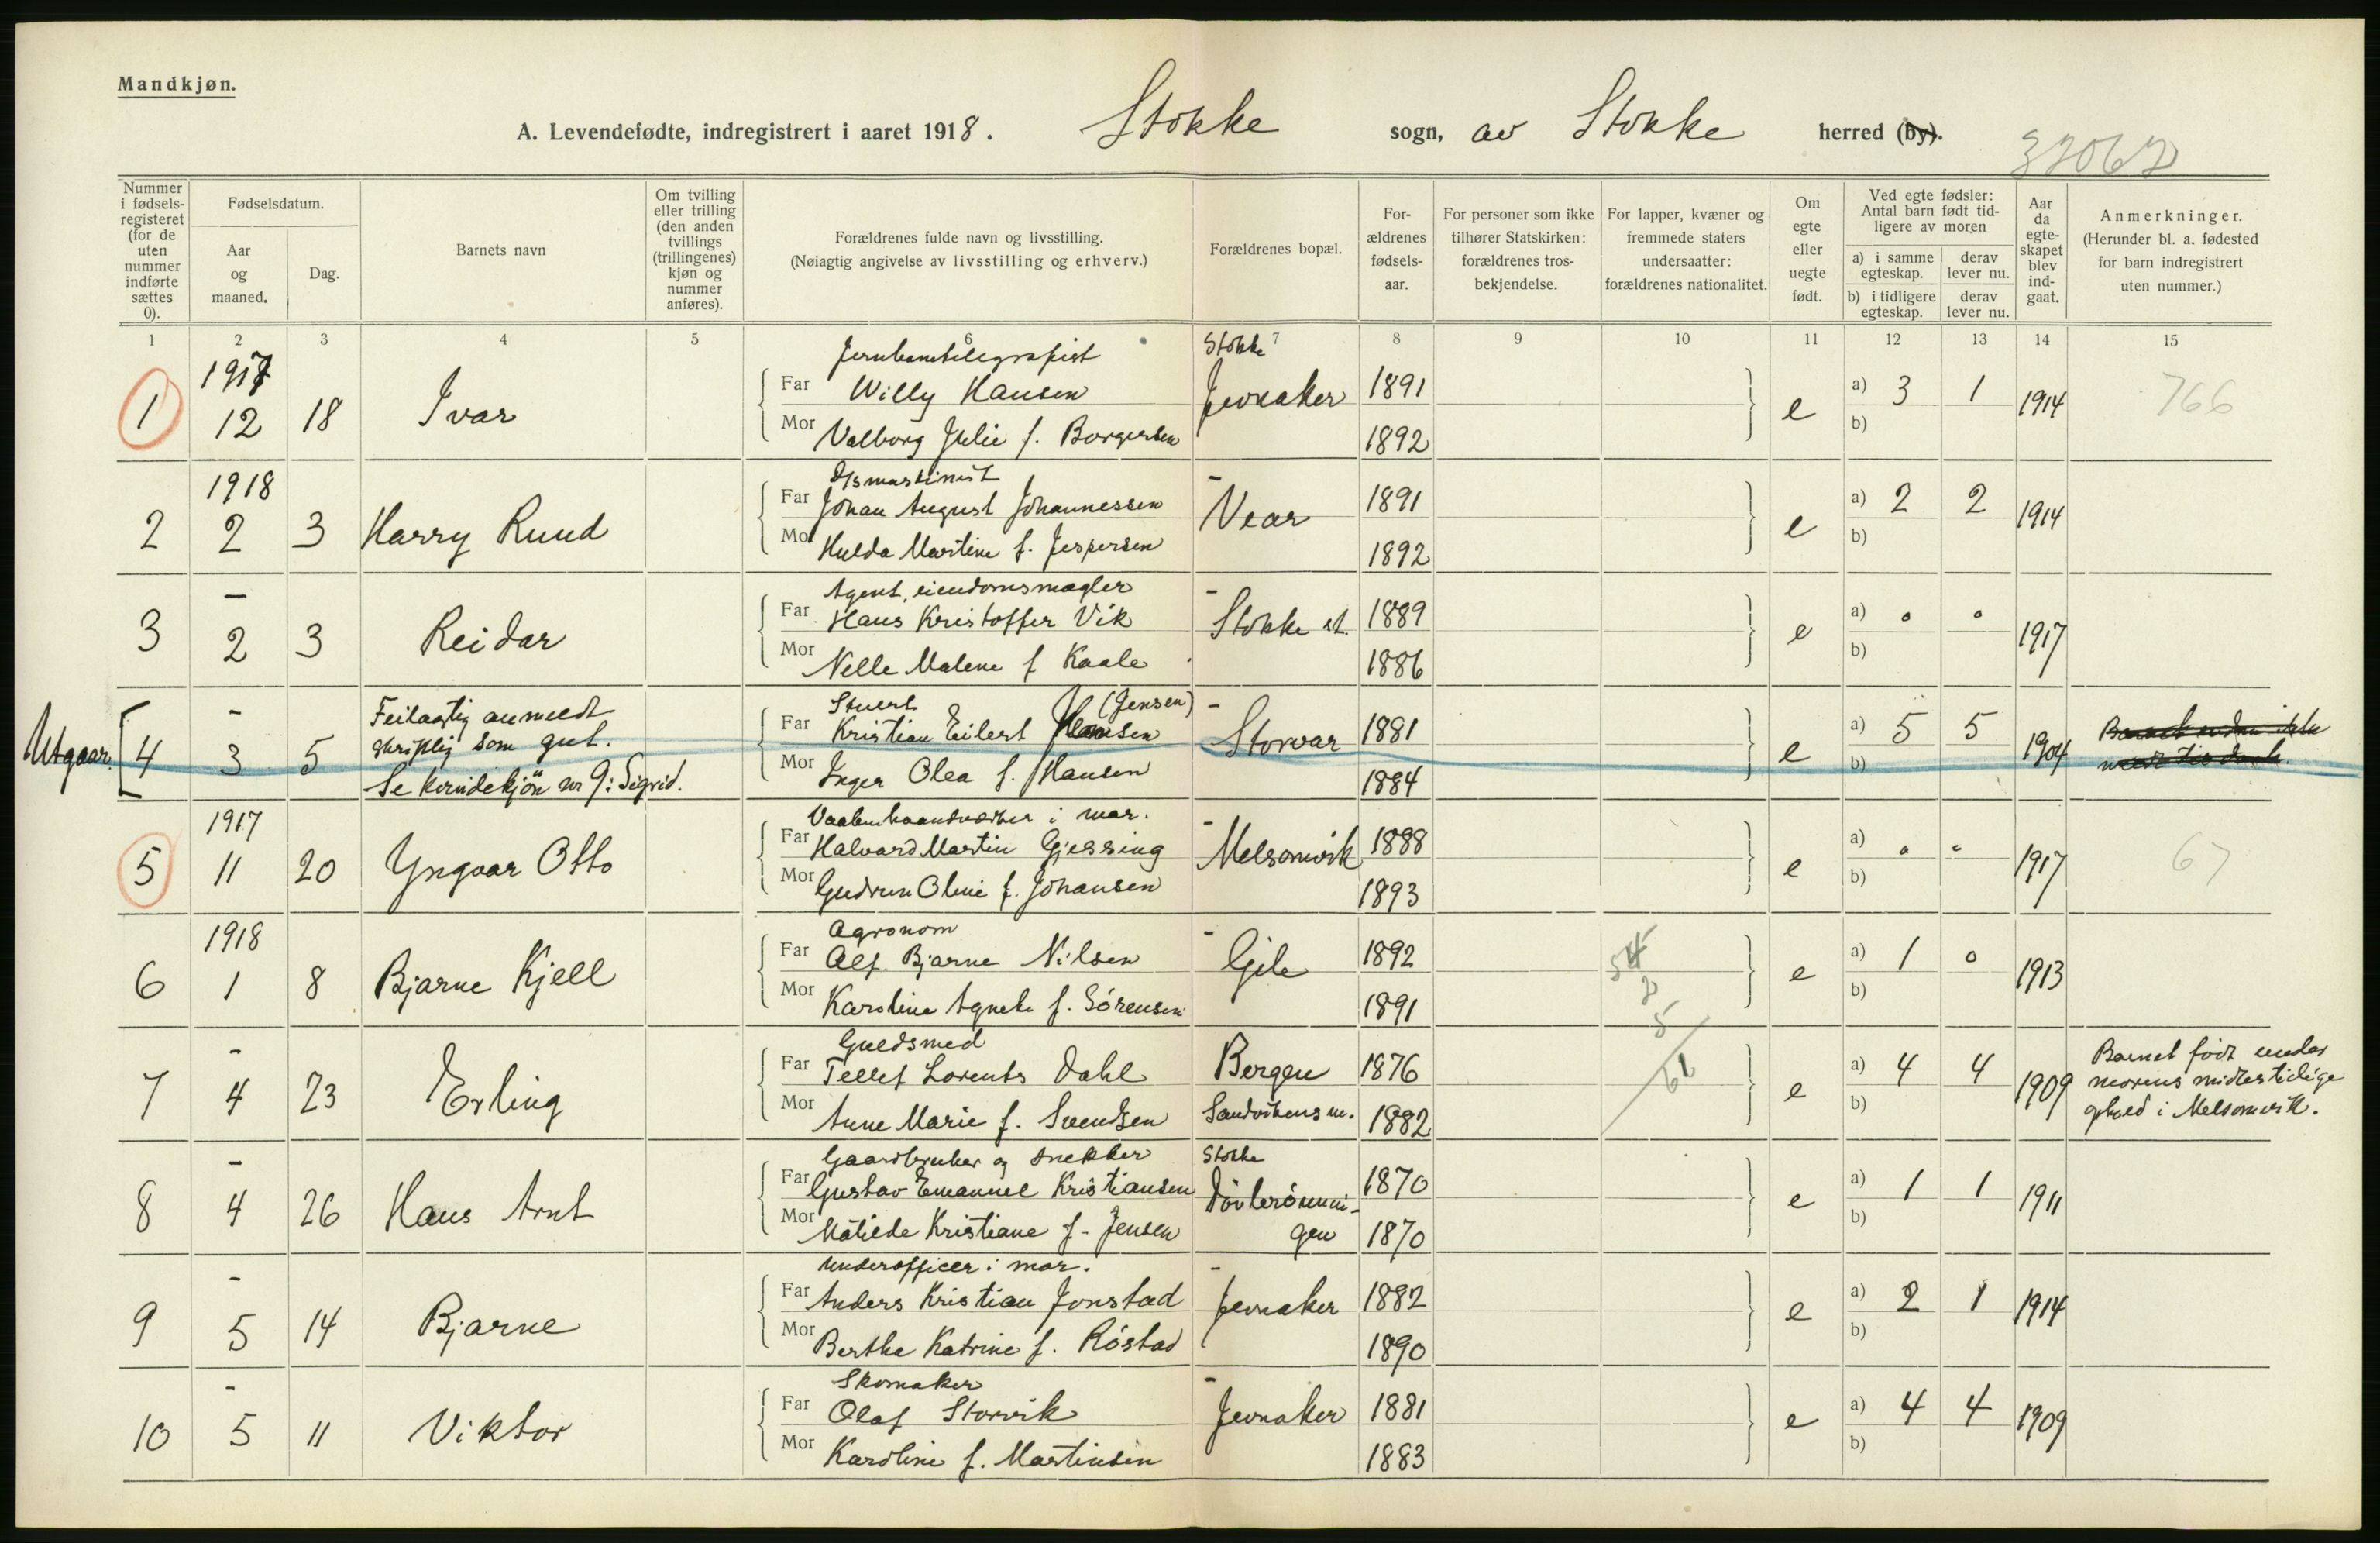 Mandkjøn.
A. Levendefødte, indregistrert i aaret 1918. Stokke sogn, av Stokke herred (by).
33062
Nummer i fødsels-registeret (for de uten nummer indførte sættes 0).
Fødselsdatum.
Aar og maaned.
Dag.
Barnets navn
Om tvilling eller trilling (den anden tvillings (trillingenes) kjøn og nummer anføres).
Forældrenes fulde navn og livsstilling.
(Nøiagtig angivelse av livsstilling og erhverv.)
Forældrenes bopæl.
For-ældrenes fødsels-aar.
For personer som ikke tilhører Statskirken: forældrenes tros-bekjendelse.
For lapper, kvæner og fremmede staters undersaatter: forældrenes nationalitet.
Om egte eller uegte født.
Ved egte fødsler: Antal barn født tid-ligere av moren
a) i samme egteskap.
derav lever nu.
b) i tidligere egteskap.
derav lever nu.
Aar da egte-skapet blev ind-gaat.
Anmerkninger.
(Herunder bl. a. fødested for barn indregistrert uten nummer.)
1 2 3 4 5 6 7 8 9 10 11 12 13 14 15
1917 Jernbanetelegrafist Stokke
1 12 18 Ivar Far Willy Hansen Jernaker 1891 e a) 3 1 1914 766
Mor Valborg Julie f. Borgersen 1892 b)
1918 D/s maskinist -
2 2 3 Harry Ruud Far Johan August Johannessen Vear 1891 e a) 2 2 1914
Mor Hulda Martine f. Jespersen 1892 b)
- Agent, eiendomsmægler -
3 2 3 Reidar Far Hans Kristoffer Vik Stokke st. 1889 e a) 0 0 1917
Mor Nelle Malene f Kaale 1886 b)
- Feilagtig anmeldt Stuert (Jensen) -
Utgaar. 4 3 5 skriftlig som gut. Far Kristian Eilert Hansen Storvar 1881 e a) 5 5 1904
Se kvindekjön nr 9: Sigrid. Mor Inger Olea f. Hansen 1884 b)
1917 Vaabenhaandverker i mar. -
5 11 20 Yngvar Otto Far Halvard Martin Gjessing Melsomvik 1888 e a) 0 0 1917 67
Mor Gudrun Oline f. Johansen 1893 b)
1918 Agronom -
6 1 8 Bjarne Kjell Far Alf Bjarne Nilsen Gile 1892 54 2 5 61 e a) 1 0 1913
Mor Karoline Agnete f. Sörensen 1891 b)
- Guldsmed Barnet født under
7 4 23 Erling Far Tellef Lorents Dahl Bergen 1876 e a) 4 4 1909 morens midlertidige
Mor Anne Marie f. Svendsen Sandvikens m. 1882 b) ophold i Melsomvik.
- Gaardbruker og snekker Stokke
8 4 26 Hans Arnt Far Gustav Emanuel Kristiansen 1870 e a) 1 1 1911
Mor Matilde Kristiane f. Jensen gen 1870 b)
- Underofficer i mar. -
9 5 14 Bjarne Far Anders Kristian Jonstad Jernaker 1882 e a) 2 1 1914
Mor Berthe Katrine f. Röstad 1890 b)
- Skomaker -
10 5 11 Viktor Far Olaf Storvik Jernaker 1881 e a) 4 4 1909
Mor Karoline f. Martinsen 1883 b)